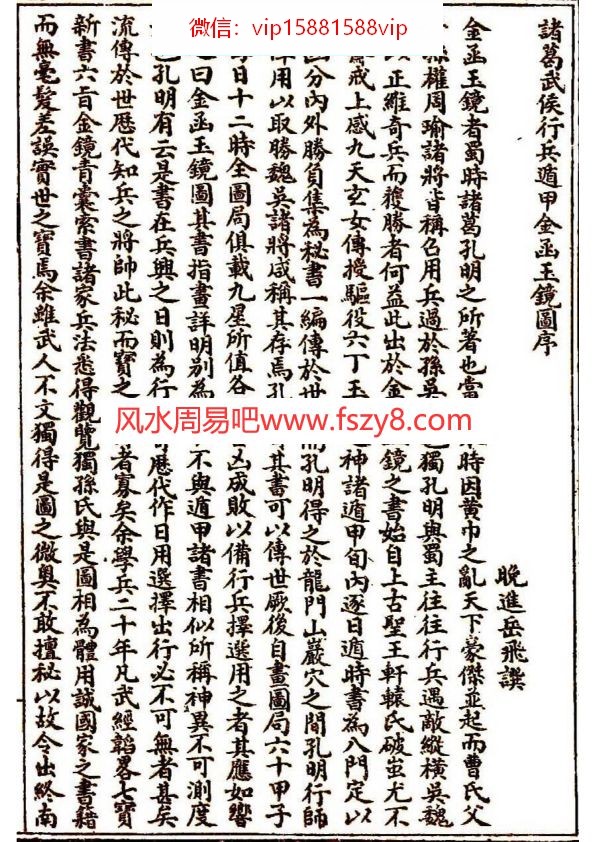 微信：vip15881588vip
諸葛武侯行兵遁甲金函玉鏡圖序
晚進岳飛譔
金函玉鏡者蜀時諸葛孔明之所著也當時因黃巾之亂天下豪傑並起而曹氏父
孫權周瑜諸將皆稱召用兵過於孫吳也獨孔明與蜀主往往行兵遇敵縱橫吳魏
以正維奇兵而獲勝者何益此出於金鏡之書始自上古聖王軒轅氏破蚩尤不
齋戒上感九天玄女傳授驅役六丁玉神諸遁甲旬內逐日遁時書為八門定以
區分內外勝負集為秘書一編傳於世而孔明得之於龍門山巖穴之間孔明行師
用以取勝魏吳諸將咸稱其存焉孔其書可以傳世厥後自畫圖局六十甲子
每日十二時全圖局俱載九星所值各凶成敗以備行兵擇選用之者其應如響
之曰金函玉鏡圖其書指畫詳明別為不與遁甲諸書相似所稱神異不可測度
也孔明有云是書在兵興之日則為行歷代作日用選擇出行必不可無者甚矣
流傳於世歷代知兵之將帥此秘而寶之者寡矣余學兵二十年凡武經韜畧七寶
新書六旨金鏡青囊索書諸家兵法悉得觀覽獨孫氏與是圖相為體用誠國家之書籍
而無毫髮差誤實世之寶焉余雖武人不文獨得是圖之微奧不敢擅秘以故令出終南
风水周易吧www.fszy8.com